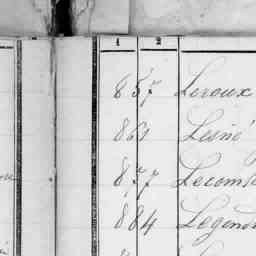 1 2
857 Leroux
861 Lainé
877 Lecomte
884 Legendr